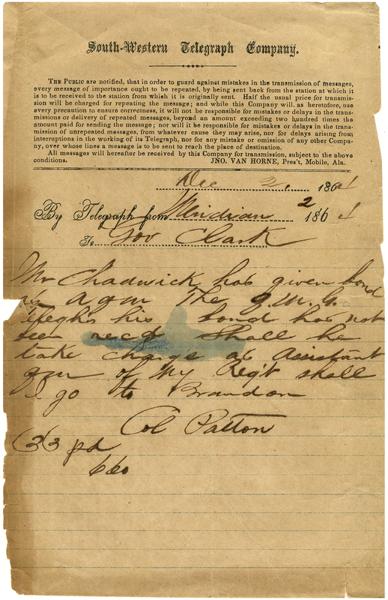 South-Western Telegraph Company.
THE PUBLIC are notified, that in order to guard against mistakes in the transmission of messages,
every message of importance ought to be repeated, by being sent back from the station at which it
is to be received to the station from which it is originally sent. Half the usual price for transmis-
sion will be charged for repeating the message; and while this Company will, as heretofore, use
every precaution to ensure correctness, it will not be responsible for mistakes or delays in the trans-
missions or delivery of repeated messages, beyond an amount exceeding two hundred times the
amount paid for sending the message; nor will it be responsible for mistakes or delays in the trans-
mission of unrepeated messages, from whatever cause they may arise, nor for delays arising from
interruptions in the working of its Telegraph, nor for any mistake or omission of any other Compa-
ny, over whose lines a message is to be sent to reach the place of destination.
All messages will hereafter be received by this Company for transmission, subject to the above
conditions. JNO. VAN HORNE, Pres't, Mobile, Ala.
Dec 2. 1864
By Telegraph from Meridian 2 1864
To Gov Clark
Mr Chadwick has given bond
as a qm The Q.M.G.
his bond has not
been recd Shall he
take charge as Assistant
qm of My Regt shall
I go to Brandon
Col Patton
33 pd
660